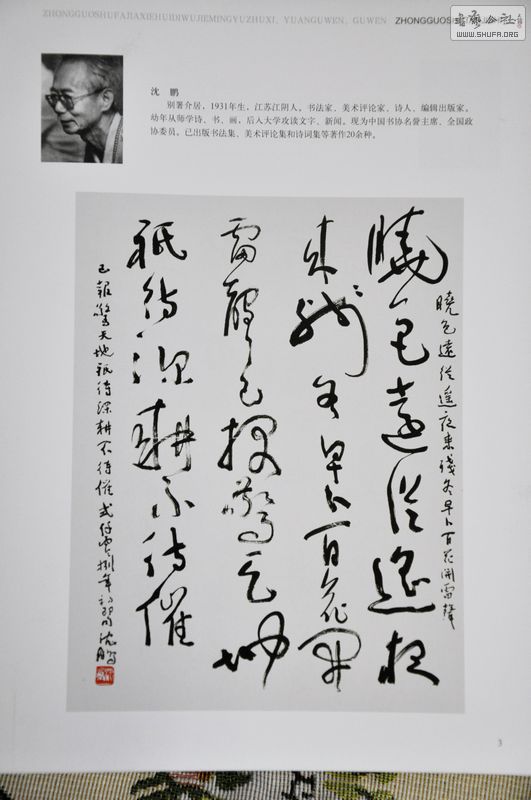 ZHONGGUOSHUFAJIAXIEHUIDIWUJIEMINGYUZHUXI, YUANGUWEN, GUWEN ZHONGGUOS
书艺公社
WWW.SHUFA.ORG
沈 鹏
别署介居，1931年生，江苏江阴人。书法家、美术评论家、诗人、编辑出版家。
幼年从师学诗、书、画，后入大学攻读文字、新闻。现为中国书协名誉主席、全国政
协委员。已出版书法集、美术评论集和诗词集等著作20余种。
曉色遠從遙夜
來殘冬早卜百花開
雷聲已報驚天地
祇待深耕不待催
曉色遠從遙夜來殘冬早卜百花開雷聲
已報驚天地祇待深耕不待催 年 沈鹏
3